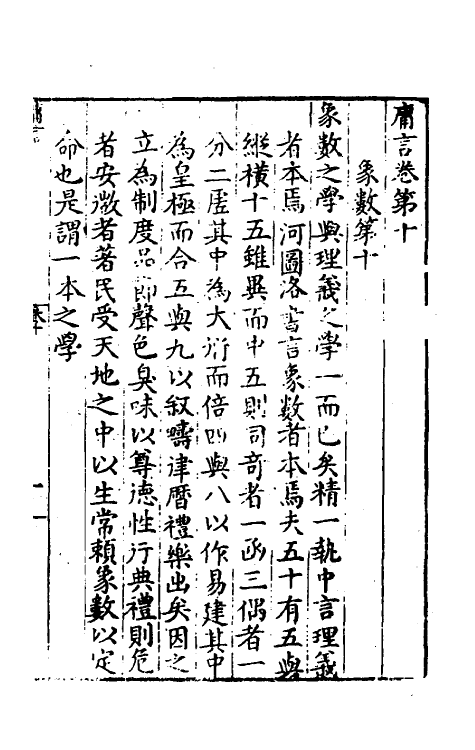 庸言卷第十
象數第十
象數之學與理義之學一而已矣精一執中言理義
者本焉河圖洛書言象數者本焉夫五十有五與
縱橫十五雖異而中五則同奇者一函三偶者一
分二虛其中為大衍而倍四與八以作易建其中
為皇極而合五與九以叙疇律曆禮樂出矣因之
立為制度品節聲色臭味以尊德性行典禮則危
者安微者著民受天地之中以生常賴象數以定
命也是謂一本之學